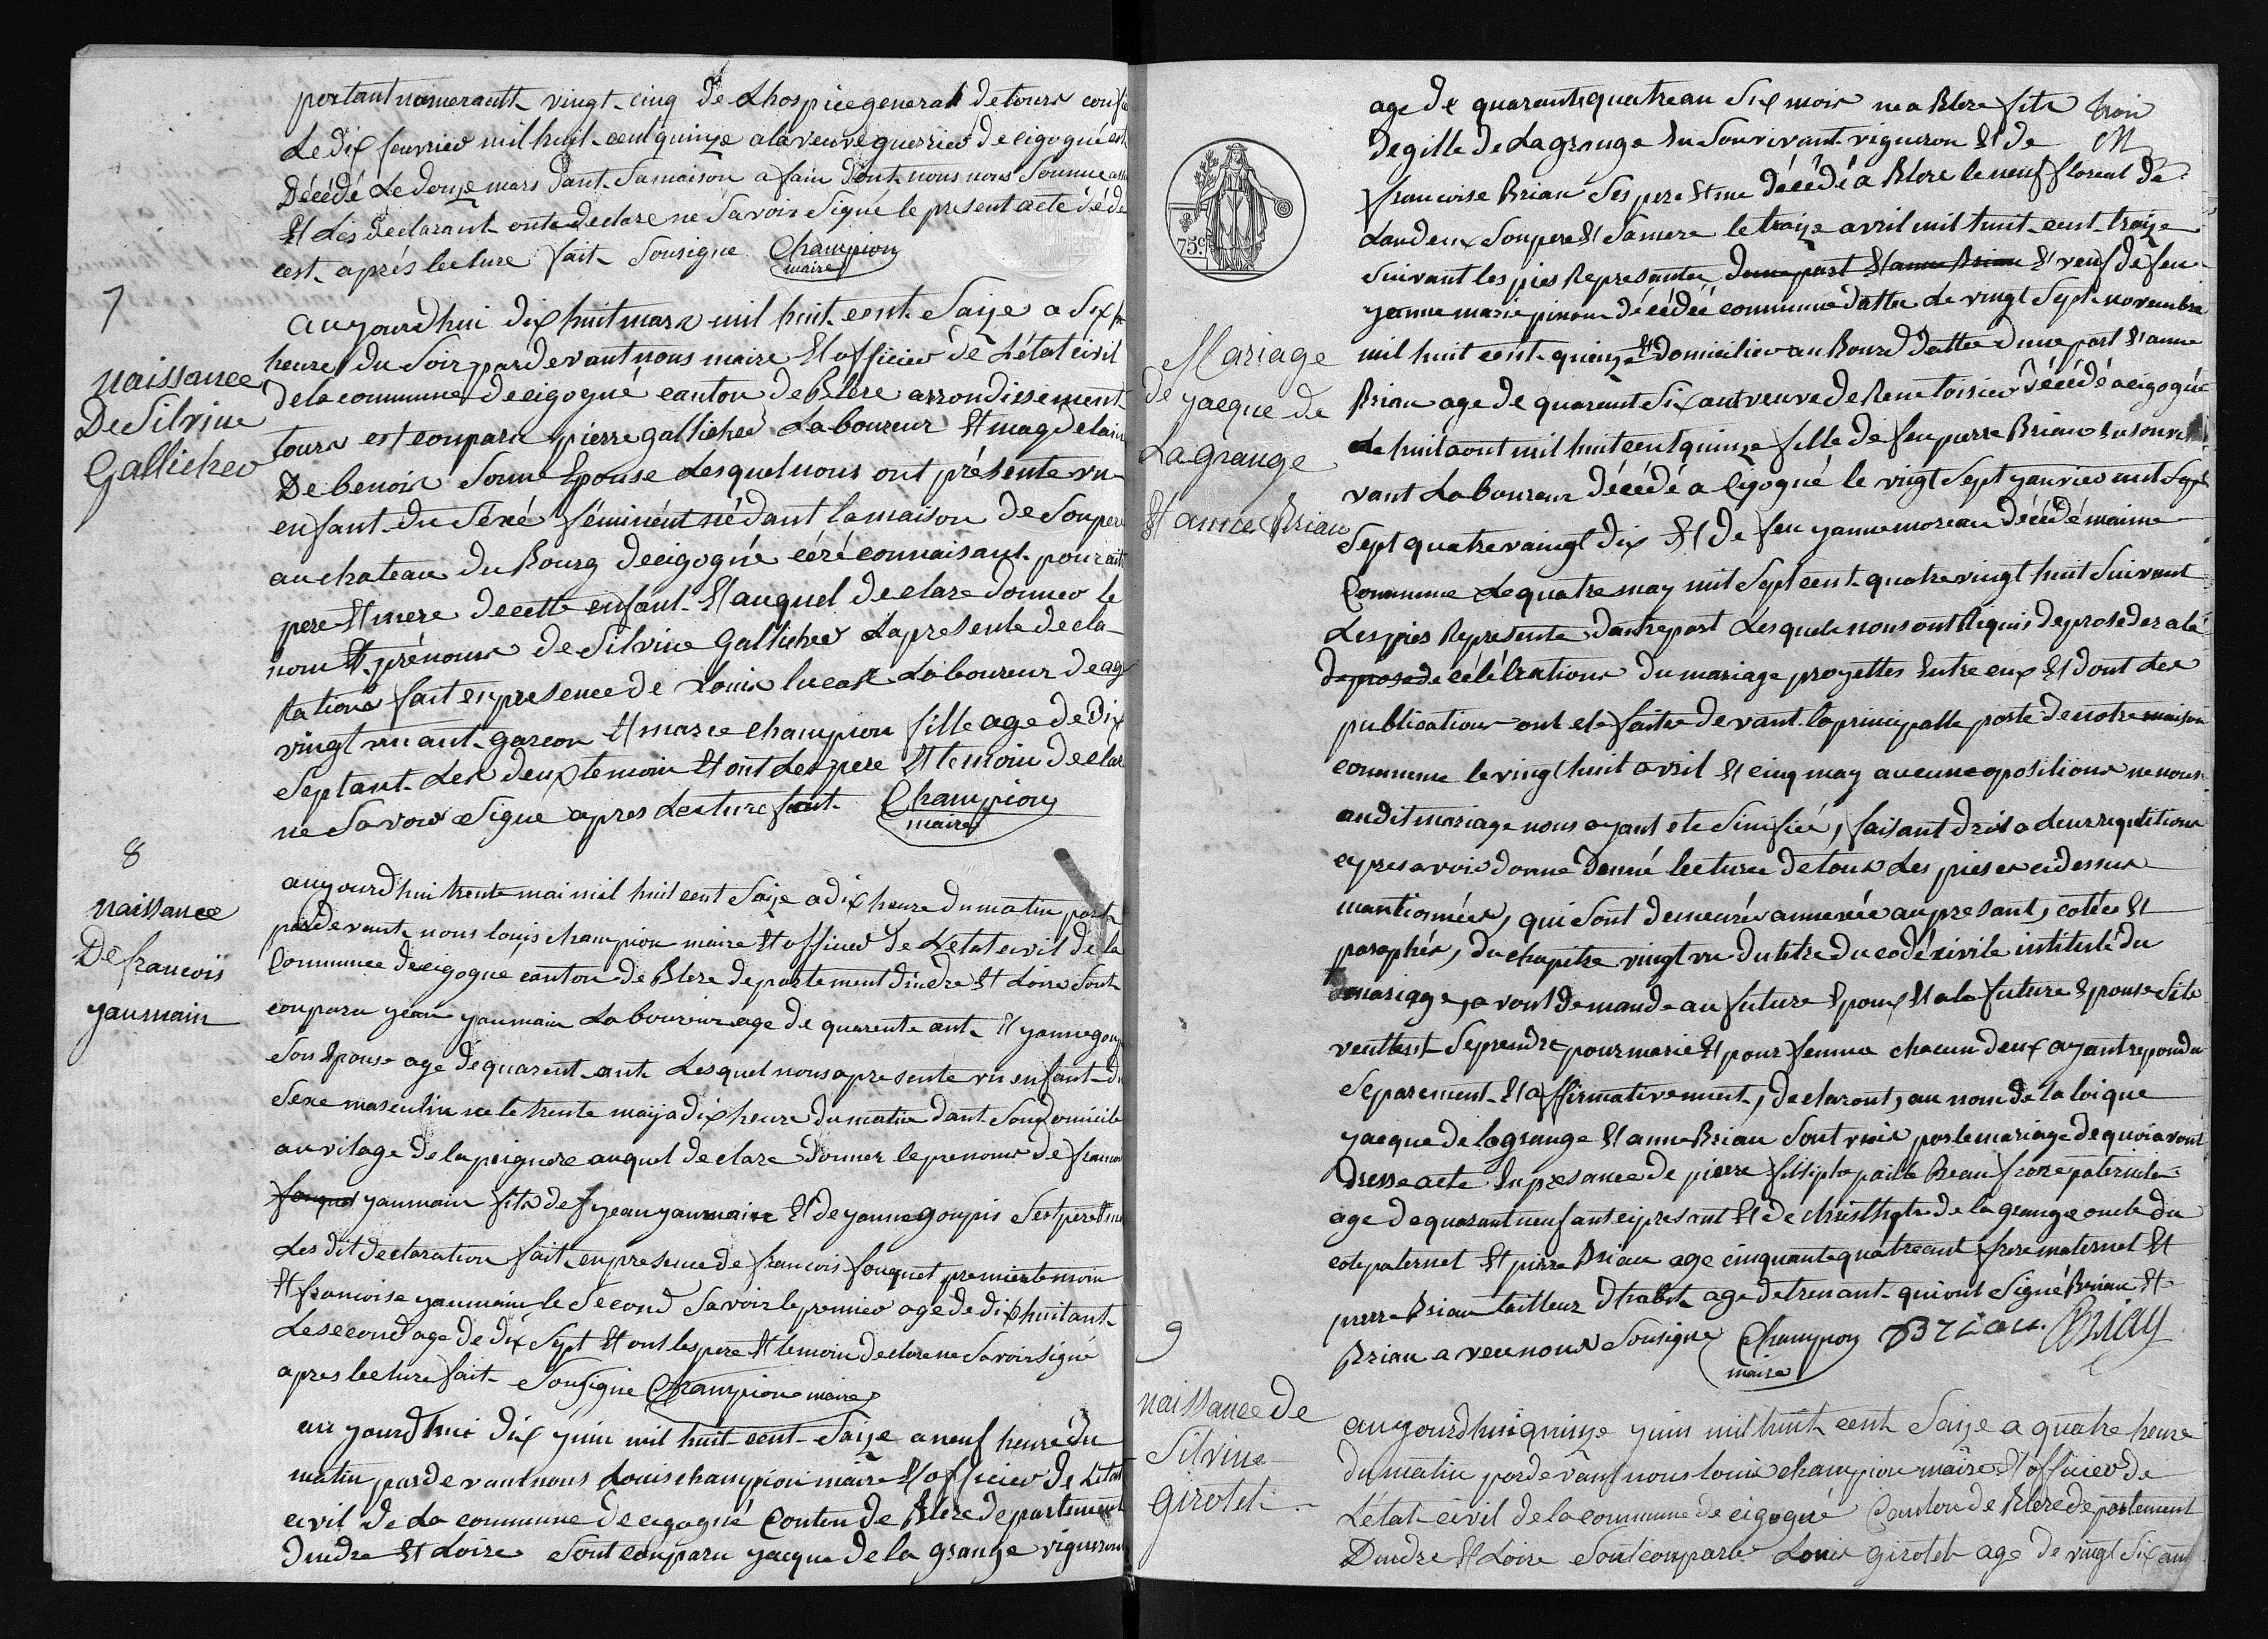 portant numeraut vingt-cinq de Lhospice general de tours confié
Le dix fevrier mil huit-cent quinze a la veuve guerrier de cigogné est
Décédé Le douze mars dant Sa maison a fain dont nous nous Somme
Et Les déclarant onte declare ne Savoir Signé le present acte déde
cest après lecture fait Sousigne Champion
maire
7
naissance
De Silvine
Gallicher
aujourdhui dix huit mars mil huit cent Saize a Six
heure du Soir pardevant nous maire Et officier de L'état civil
de la commune de cigogné canton de Blere arrondissement
tours est comparu pierre gallicher Laboureur Et magdelain
De benoir Sonne Epouse Lesquel nous ont présente un
enfant du Séxé féminént né dant la maison de Son pere
au chateau du Bourg de cigogné céré connaisant pour ait
pere Et mere de cette enfant Et auquel declare donner le
nom Et prénoms de Silvine Gallicher La presente decla-
rations fait en presence de Louis lucas Laboureur de age
vingt un ant garcon Et marie champion fille age de Dix
Septant Les deux temoin Et ont Les pere Et temoin declar
ne Savoir Signe apres Lecture fait Champion
maire
8
naissance
De francois
yaumain
aujourdhui trente mai mil huit cent Saize a dix heure du matin
pardevant nous louis champion maire Et officier de L'etat civil de la
Commune de cigogne canton de Blere departement dindre Et Loire Sont
comparu yean yaumain Laboureur age de quarente ant Et yanne goupi
Son Epouse age de quarent ant Lesquel nous apresente un enfant du
Sexe masculin ne le trente may a dix heure du matin dant Son domicile
au vilage de la peignere auquel declare donner le prenoms de francois
yaumain fils de yean yaumain Et de yanne goupis Sest pere Et mere
Les dit declaration fait en presence de francois fouquet premier temoin
Et francoise yaumain le Second Savoir le premier age de dix huit ant
Le second age de dix Sept Et ont les pere Et temoin declare ne Savoir Signé
apres lecture fait Sousigne Champion maire
aujourdhui dix juin mil huit cent Saize a neuf heure du
matin pardevant nous Louis champion maire Et officier de L'etat
civil de La commune de cigogné Canton de Blere departement
dindre Et Loire Sont comparu yacque de la grange vigneron
age de quarante quatre an Six mois ne a Blere fils
trois
de gille de Lagrange En Son vivant vigneron Et de
francoise Brian Ses pere Et me décédé a Blere le neuf floreal de
Lan deux Son pere Et Sa mere le traize avril mil huit cent traize
Suivant les pies Representer dune part Et anne Brian Et veuf de feu
yanne marie pinon décédée commune datté Le vingt Sept novembre
mil huit cent quinze Et Domicilier au Bourd datté dune part Et anne
Brian age de quarant Six ant veuve de Rene loisier décédé a cigogné
Le huit aout mil huit cent quinze fille de feu pierre Brian En Son vi
vant Laboureur décédé a Cigogné le vingt Sept yanvier mil Sept
Sept quatre vaingt dix Et De feu yanne moreau décédé maime
Commune Le quatre may mil Sept cent quatre vingt huit Suivant
Les pies Represente dautre part Lesquele nous ont Requis de proseder a la
de prose de célébrations du mariage proyettes Entre eux Et dont Les
publications ont ete faite devant la principalle porte de notre maison
commune le vingt huit avril Et cinq may aucune opositions ne nous
au dit mariage nous ayant ete Sinifiée, faisant droit a Leur requititions
apres avoir donne Donné lecture de tous Les pieses cidessus
mantionnées, qui Sont demeurés annexée au presant, cotées Et
paraphés, du chapitre vingt un du titre du codé civile intitulé du
mariage, avont demande au future Epoux Et a la future Epouse Sils
veullent Se prendre pour marie Et pour femme chacun deux ayant repondu
Separement Et affirmativement, declaront, au nom de la loi que
yacque de lagrange Et anne Brian Sont unie par le mariage de quoi avont
dresse acte En presance de pierre paille Beau frere paternele
age de quarant neuf ant ci presant Et de de la grange oncle du
cote paternel Et pierre Brian age cinquante quatre ant frere maternel Et
pierre Brian tailleur dhabit age de trenant qui ont Signé Brian Et
Brian avec nous Sousigne Champion Briau Briau
maire
Mariage
de yacque de
Lagrange
Et anne Brian
75c
9
naissance de
Silvine
girolet
aujourdhui quinze yuin mil huit cent Saize a quatre heure
du matin pardevant nous louis champion maire Et officier de
L'état civil de la commune de cigogné Canton de Blere departement
Dindre Et Loire Sont comparu Louis girolet age de vingt Six ans